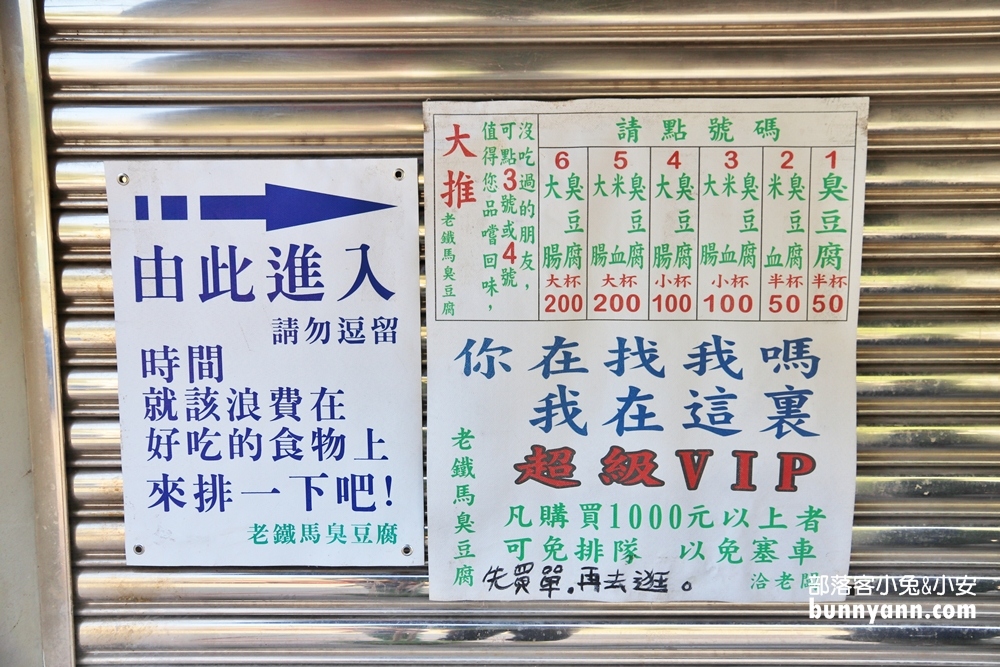 由此進入
請勿逗留
時間
就該浪費在
好吃的食物上
來排一下吧!
老鐵馬臭豆腐
請點號碼
1
臭豆腐
半杯
50
2
臭豆腐
米血
半杯
50
3
臭豆腐
米血
大腸
小杯
100
4
臭豆腐
大腸
小杯
100
5
臭豆腐
米血
大腸
大杯
200
6
臭豆腐
大腸
大杯
200
沒吃過的朋友,
可點3號或4號
值得您品嚐回味,
大推
老鐵馬臭豆腐
你在找我嗎
我在這裏
超級VIP
凡購買1000元以上者
可免排隊 以免塞車
洽老闆
老鐵馬臭豆腐
先買單.再去逛。
部落客小兔&小安
bunnyann.com